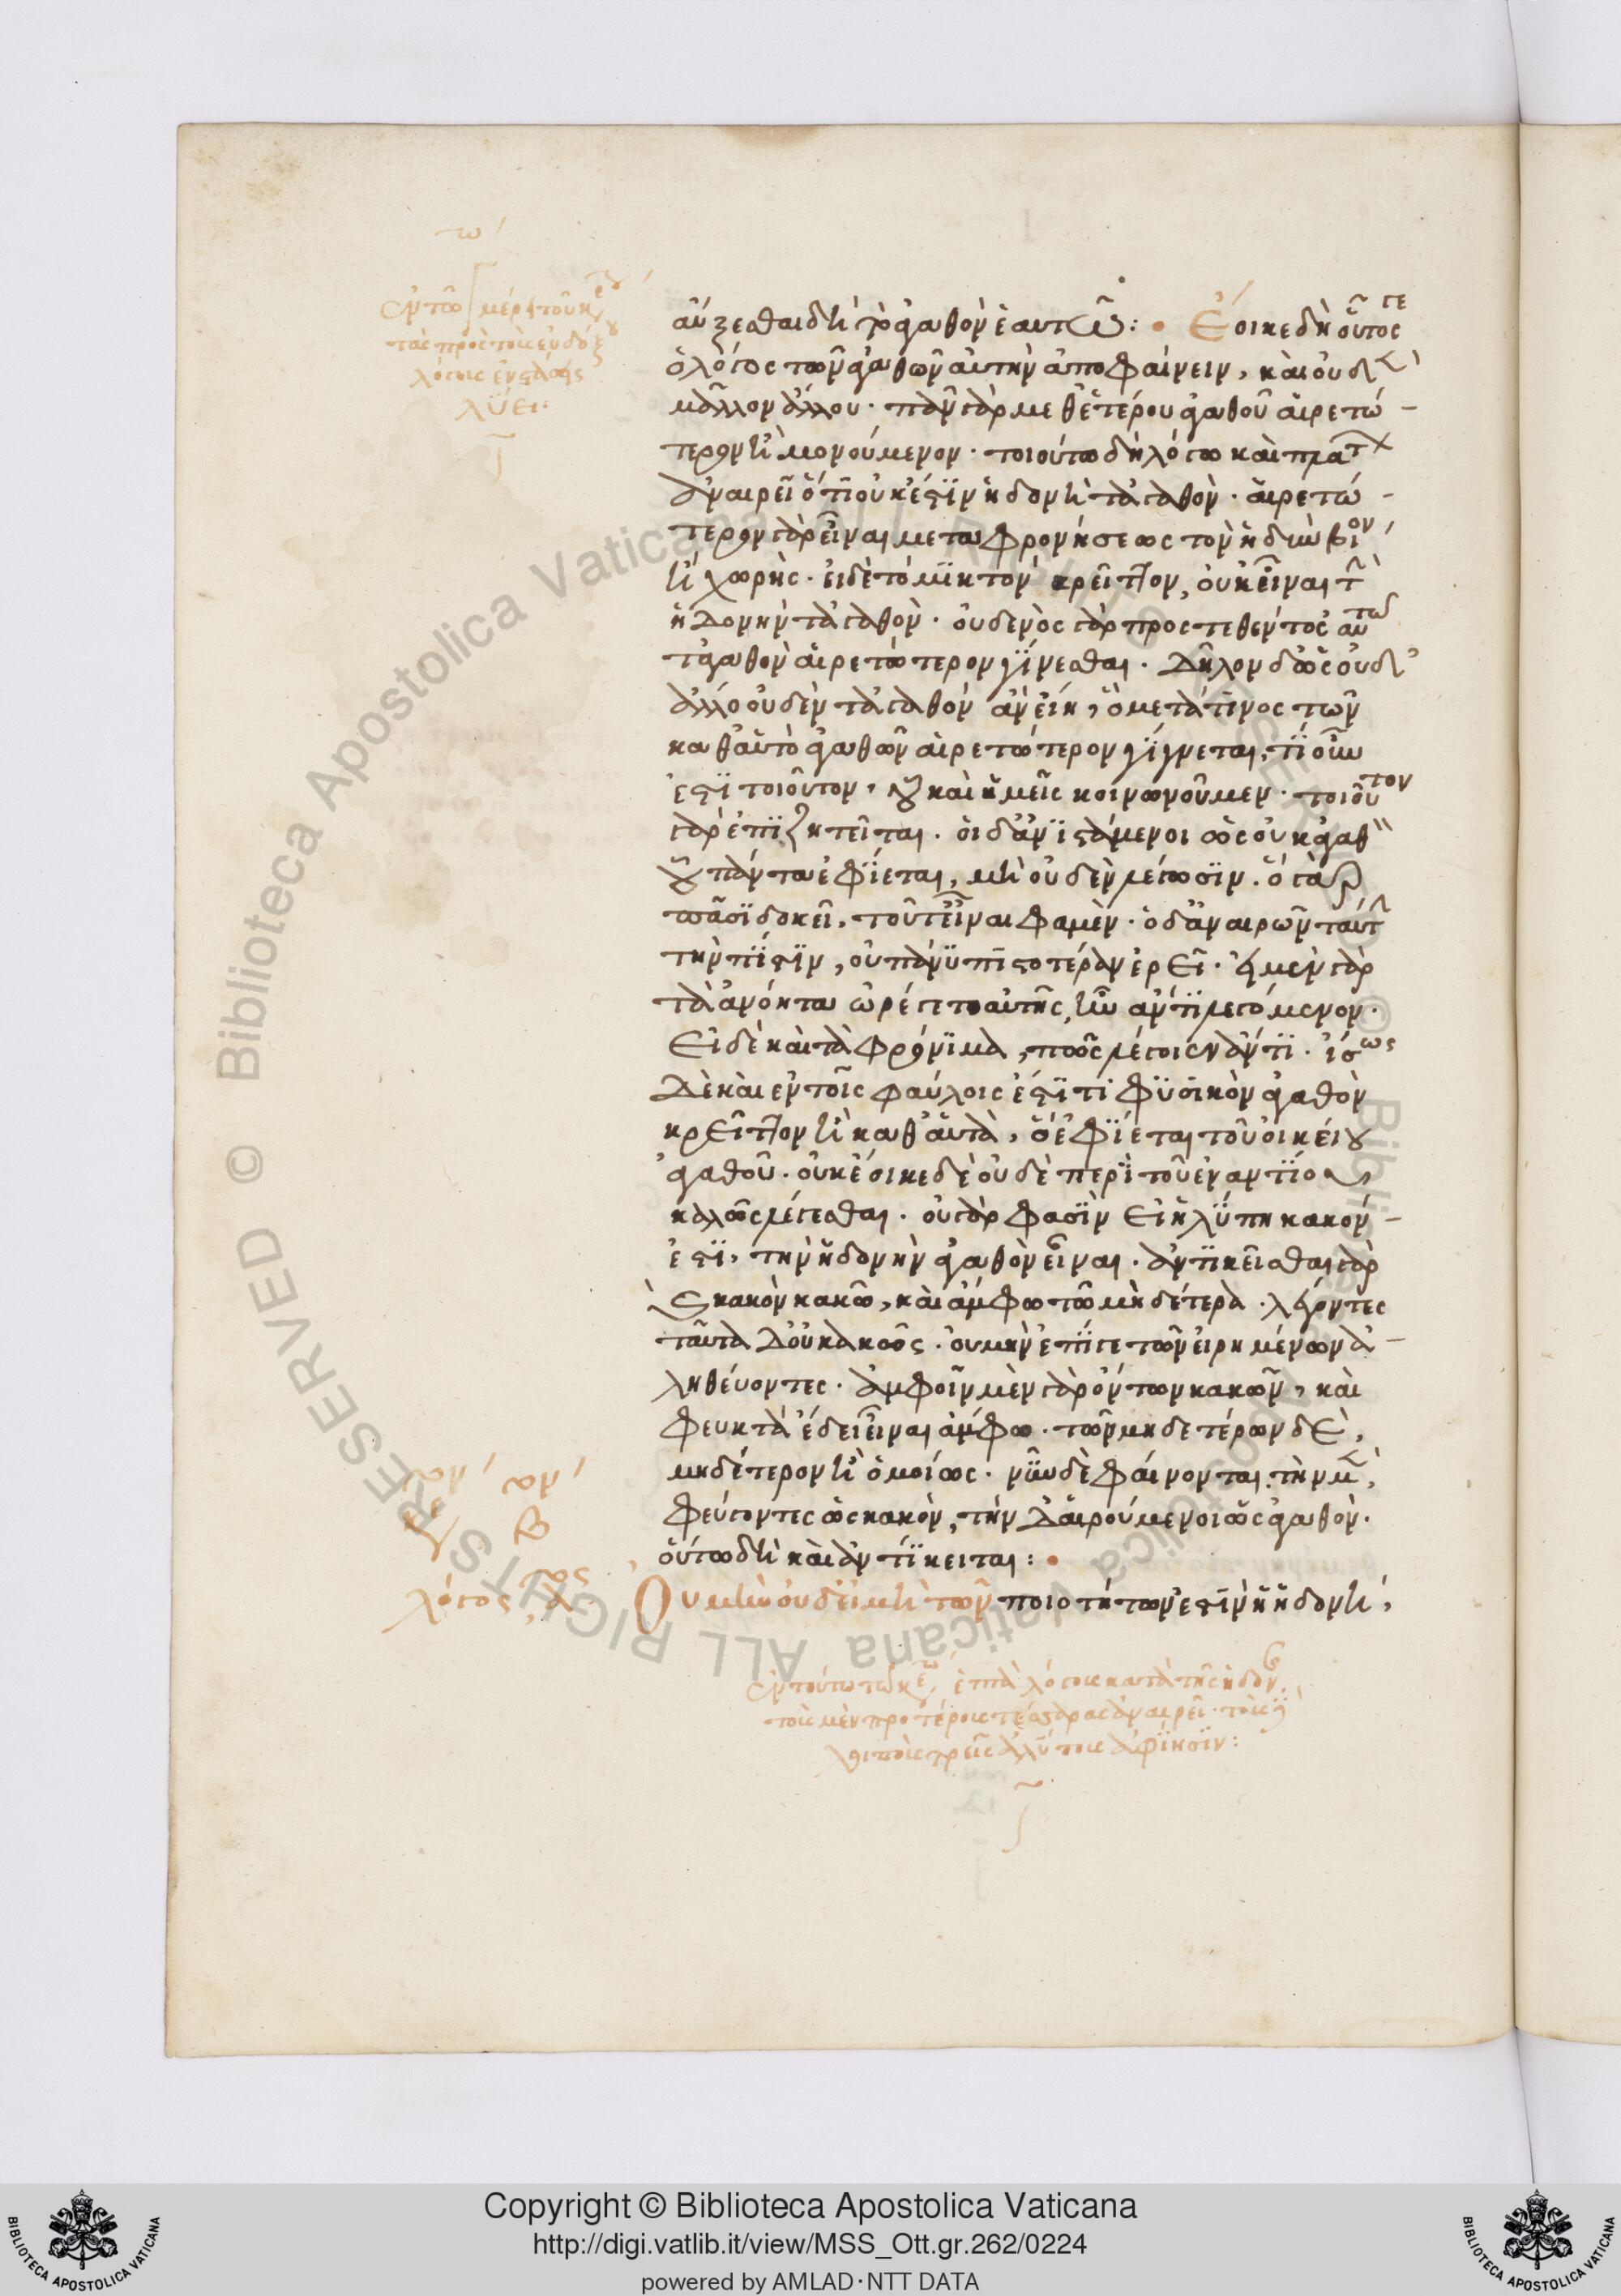 αὔξεσθαι δὴ τὸ ἀγαθὸν ἑαυτῷ: · Ἔοικε δὴ οὗτός γε
ὁ λόγος τῶν ἀγαθῶν αὐτὴν ἀποφαίνειν, καὶ οὐδὲν
μᾶλλον ἄλλου · πᾶν γὰρ μεθ' ἑτέρου ἀγαθοῦ αἱρετώ-
τερον ἢ μονούμενον · τοιούτω δὴ λόγω καὶ πλάτων
ἀναιρεῖ ὅτι οὐκ ἔστιν ἡδονὴ τἀγαθὸν · αἱρετώ-
τερον γὰρ εἶναι μετὰ φρονήσεως τὸν ἡδὺν βίον,
ἢ χωρὶς · εἰ δὲ τὸ μικτὸν κρεῖττον, οὐκ εἶναι τὴν
ἡδονὴν τἀγαθὸν · οὐδενὸς γὰρ προστεθέντος αὐτῶ
τἀγαθὸν αἱρετώτερον γίνεσθαι · Δῆλον δ' ὡς οὐδ'
ἄλλο οὐδὲν τἀγαθὸν ἂν εἴη, ὃ μετά τινος τῶν
καθ' αὑτὸ ἀγαθῶν αἱρετώτερον γίγνεται, τί οὖν
ἐστὶ τοιοῦτον, οὗ καὶ ἡμεῖς κοινωνοῦμεν · τοιοῦτον
γὰρ ἐπιζητεῖται · οἱ δ' ἀνιστάμενοι ὡς οὐκ ἀγαθὸν
οὗ πάντα ἐφίεται, μὴ οὐδὲν λέγωσιν · ὃ γὰρ
πᾶσι δοκεῖ, τοῦτ' εἶναι φαμὲν · ὁ δ' ἀναιρῶν ταύτην
τὴν πίστιν, οὐ πάνυ πιστότερα ἐρεῖ · εἰ μὲν γὰρ
τὰ ἀνόητα ὠρέγετο αὐτῆς, ἦν ἄν τι λεγόμενον ·
Εἰ δὲ καὶ τὰ φρόνιμα, πῶς λέγοιεν ἄν τι · ἴσως
Δὲ καὶ ἐν τοῖς φαύλοις ἐστί τι φυσικὸν ἀγαθὸν
κρεῖττον ἢ καθ' αὑτὰ, ὃ ἐφίεται τοῦ οἰκείου
ἀγαθοῦ · οὐκ ἔοικε δὲ οὐδὲ περὶ τοῦ ἐναντίου
καλῶς λέγεσθαι · οὐ γάρ φασιν εἰ ἡ λύπη κακόν-
ἐστι, τὴν ἡδονὴν ἀγαθὸν εἶναι · ἀντικεῖσθαι γὰρ
καὶ κακὸν κακῶ, καὶ ἄμφω τῶ μηδέτερα · λέγοντες
ταῦτα Δ' οὐ κακῶς · οὐ μὴν ἐπί γε τῶν εἰρημένων ἀ-
ληθεύοντες · ἀμφοῖν μὲν γὰρ ὄντων κακῶν, καὶ
φευκτὰ ἔδει εἶναι ἄμφω · τῶν μηδετέρων δὲ,
μηδέτερον ἢ ὁμοίως · νῦν δὲ φαίνονται τὴν μὲν
φεύγοντες ὡς κακὸν, τὴν Δ' αἱρούμενοι ὡς ἀγαθὸν ·
οὕτω δὴ καὶ ἀντίκειται: ·
Οὐ μὴν οὐδ' εἰ μὴ τῶν ποιοτήτων ἐστὶν ἡ ἡδονὴ,
λύει:
λόγος
ἐν τούτω τῶ κεφ ἑπτὰ λόγοις κατὰ τῆς ἡδονῆς
τοῖς μὲν προτέροις τέσσαρας ἀναιρεῖ · τοῖς
λοιποῖς τρεῖς ἀλύτοις ἀφίησιν:
Copyright © Biblioteca Apostolica Vaticana
http://digi.vatlib.it/view/MSS_Ott.gr.262/0224
powered by AMLAD·NTT DATA